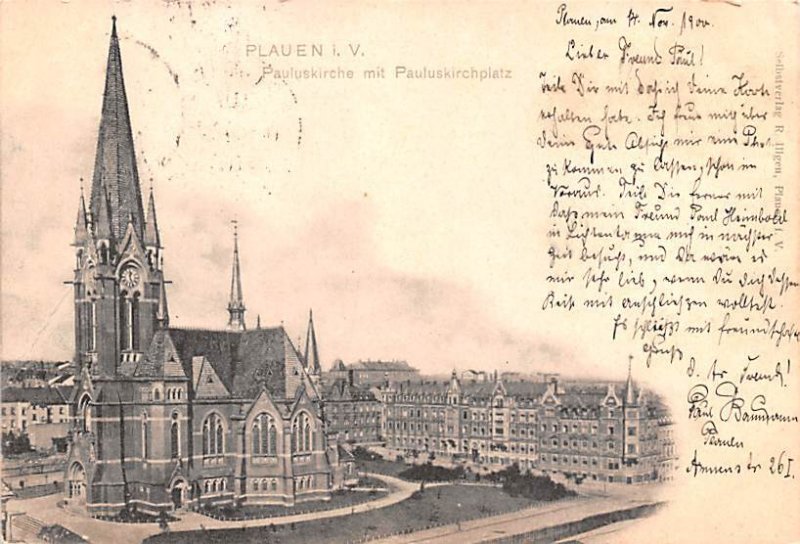 PLAUEN i. V.
Pauluskirche mit Pauluskirchplatz
Selbstverlag R. Illgen, Plauen i. V.
Plauen, am 14. Nov. 1900.
Lieber Freund Paul!
Teile Dir mit daß ich deine Karte
erhalten habe. Ich freue mich über
deine Gute Absicht mir eine
zu kommen zu lassen, schon im
Voraus. Teile Dir ferner mit
daß mein Freund Paul Heimbold
in Lichtentanne mich in nächster
Zeit besucht, und da wäre es
mir sehr lieb, wenn Du dich dessen
Reise mit anschließen wolltest.
Es schließt mit freundschaftl.
Gruß
Freund!
Paul Baumann
Plauen
Annenstr 26 I